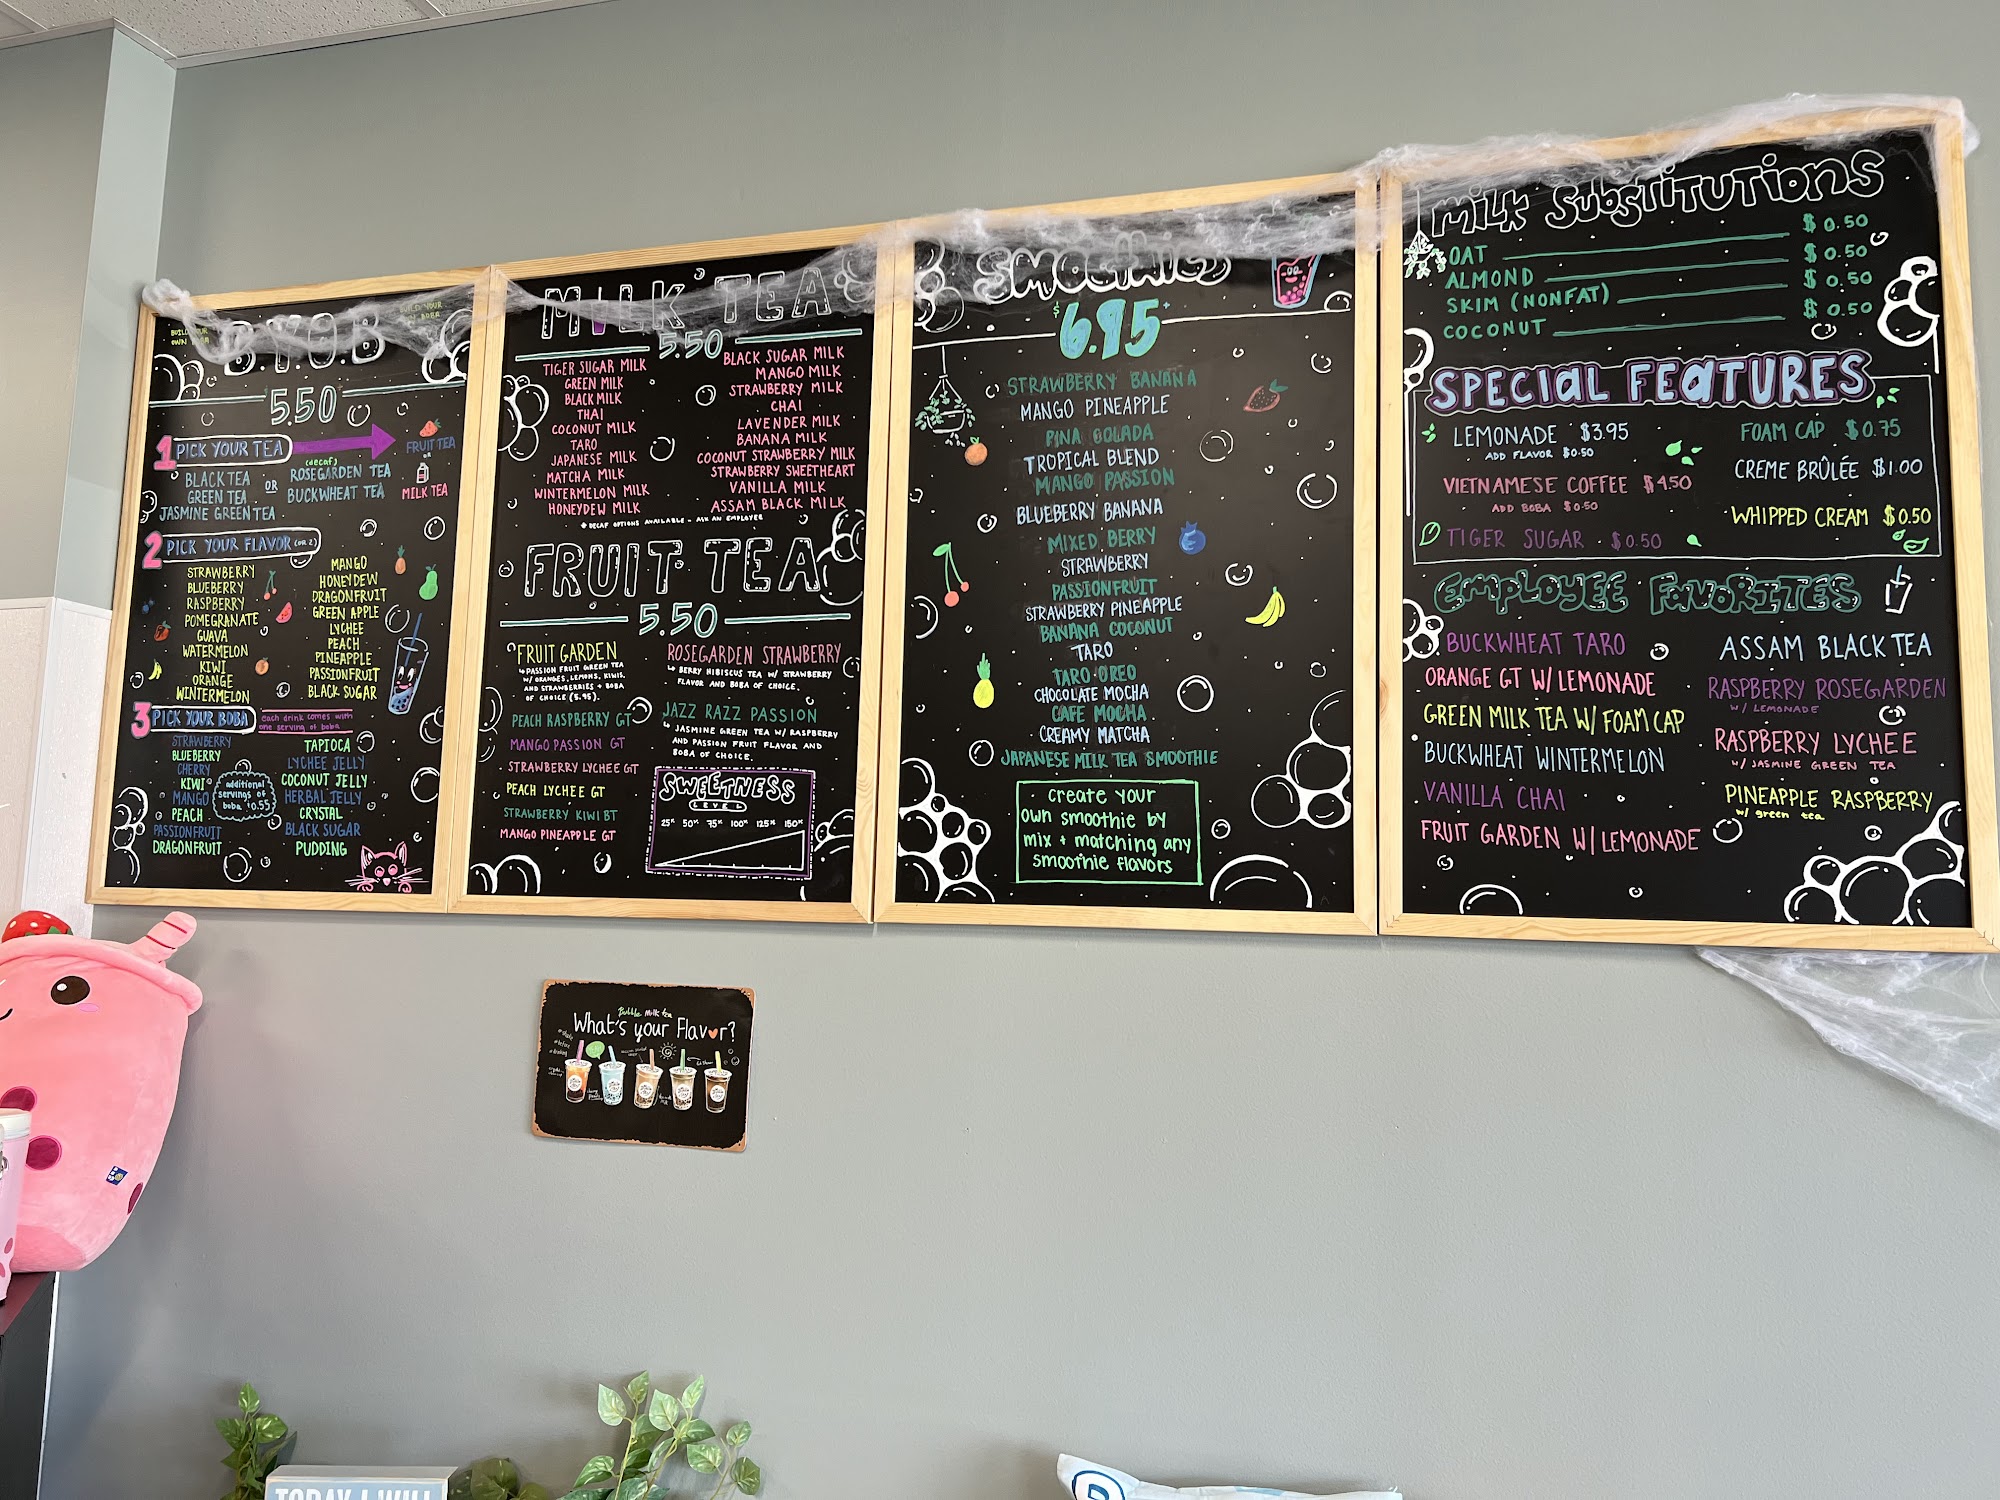 BUILD YOUR
OWN BOBA
B.Y.O.B
BUILD YOUR
OWN BOBA
5.50
1 PICK YOUR TEA
FRUIT TEA
OR
MILK TEA
BLACK TEA
GREEN TEA
JASMINE GREEN TEA
OR
(decaf)
ROSEGARDEN TEA
BUCKWHEAT TEA
2 PICK YOUR FLAVOR (OR 2)
STRAWBERRY
BLUEBERRY
RASPBERRY
POMEGRANATE
GUAVA
WATERMELON
KIWI
ORANGE
WINTERMELON
MANGO
HONEYDEW
DRAGONFRUIT
GREEN APPLE
LYCHEE
PEACH
PINEAPPLE
PASSIONFRUIT
BLACK SUGAR
3 PICK YOUR BOBA
each drink comes with
one serving of boba
STRAWBERRY
BLUEBERRY
CHERRY
KIWI
MANGO
PEACH
PASSIONFRUIT
DRAGONFRUIT
additional
servings of
boba $0.55
TAPIOCA
LYCHEE JELLY
COCONUT JELLY
HERBAL JELLY
CRYSTAL
BLACK SUGAR
PUDDING
MILK TEA
5.50
TIGER SUGAR MILK
GREEN MILK
BLACK MILK
THAI
COCONUT MILK
TARO
JAPANESE MILK
MATCHA MILK
WINTERMELON MILK
HONEYDEW MILK
BLACK SUGAR MILK
MANGO MILK
STRAWBERRY MILK
CHAI
LAVENDER MILK
BANANA MILK
COCONUT STRAWBERRY MILK
STRAWBERRY SWEETHEART
VANILLA MILK
ASSAM BLACK MILK
* DECAF OPTIONS AVAILABLE - ASK AN EMPLOYEE
FRUIT TEA
5.50
FRUIT GARDEN
PASSION FRUIT GREEN TEA
W/ ORANGES, LEMONS, KIWIS,
AND STRAWBERRIES + BOBA
OF CHOICE (5.95).
PEACH RASPBERRY GT
MANGO PASSION GT
STRAWBERRY LYCHEE GT
PEACH LYCHEE GT
STRAWBERRY KIWI BT
MANGO PINEAPPLE GT
ROSEGARDEN STRAWBERRY
BERRY HIBISCUS TEA W/ STRAWBERRY
FLAVOR AND BOBA OF CHOICE.
JAZZ RAZZ PASSION
JASMINE GREEN TEA W/ RASPBERRY
AND PASSION FRUIT FLAVOR AND
BOBA OF CHOICE.
SWEETNESS
LEVEL
25% 50% 75% 100% 125% 150%
SMOOTHIES
$6.95+
STRAWBERRY BANANA
MANGO PINEAPPLE
PINA COLADA
TROPICAL BLEND
MANGO PASSION
BLUEBERRY BANANA
MIXED BERRY
STRAWBERRY
PASSIONFRUIT
STRAWBERRY PINEAPPLE
BANANA COCONUT
TARO
TARO OREO
CHOCOLATE MOCHA
CAFE MOCHA
CREAMY MATCHA
JAPANESE MILK TEA SMOOTHIE
create your
own smoothie by
mix + matching any
smoothie flavors
MILK SUBSTITUTIONS
OAT $0.50
ALMOND $0.50
SKIM (NONFAT) $0.50
COCONUT $0.50
SPECIAL FEATURES
LEMONADE $3.95
ADD FLAVOR $0.50
VIETNAMESE COFFEE $4.50
ADD BOBA $0.50
TIGER SUGAR $0.50
FOAM CAP $0.75
CREME BRÛLÉE $1.00
WHIPPED CREAM $0.50
EMPLOYEE FAVORITES
BUCKWHEAT TARO
ORANGE GT W/ LEMONADE
GREEN MILK TEA W/ FOAM CAP
BUCKWHEAT WINTERMELON
VANILLA CHAI
FRUIT GARDEN W/ LEMONADE
ASSAM BLACK TEA
RASPBERRY ROSEGARDEN
W/ LEMONADE
RASPBERRY LYCHEE
W/ JASMINE GREEN TEA
PINEAPPLE RASPBERRY
w/ green tea
Bubble Milk tea
What's your Flavor?
TODAY I WILL